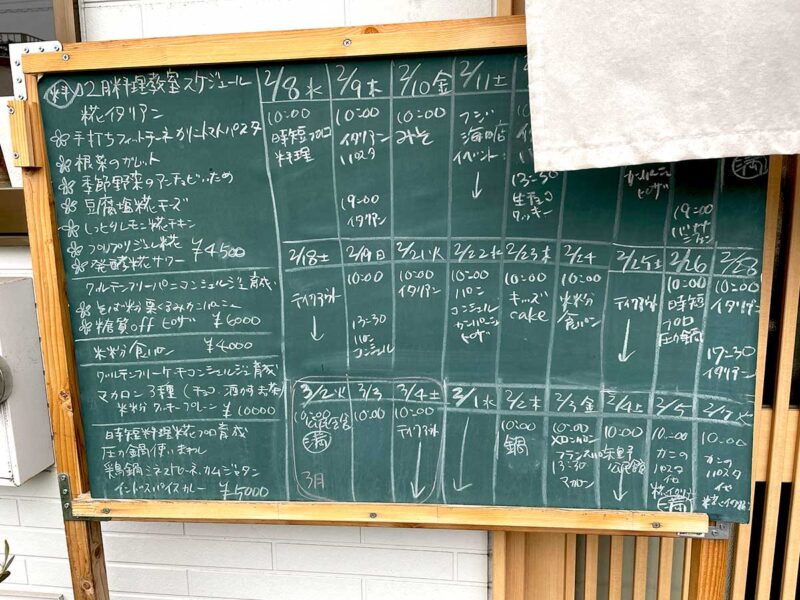 2月料理教室スケジュール
糀イタリアン
手打ちフィットチーネカリートマトパスタ
根菜のガレット
季節野菜のアーチョビいため
豆腐塩糀チーズ
しっとりレモン糀チキン
プルプリンジュレ糀
発酵糀サワー ¥4500
グルテンフリーパンコンシェルジュ育成
そば粉栗くるみカンパーニュ
糖質off ピザ ¥6000
米粉食パン ¥4000
グルテンフリーケーキコンシェルジュ育成
マカロン3種(チョコ
米粉クッキープレーン ¥10000
時短料理糀プロ育成
圧力鍋使いまわし
インドスパイスカレー ¥5000
2/8 水
10:00
時短プロ
料理
2/9 木
10:00
イタリアン
パスタ
19:00
イタリアン
2/10 金
10:00
みそ
2/11 土
フジ
海の店
イベント
13:30
生チョコ
クッキー
満
カンパーニュ
ピザ
19:00
2/18 土
テイクアウト
2/19 日
10:00
13:30
パン
コンシェル
2/21 火
10:00
イタリアン
2/22 水
10:00
パン
コンシェル
カンパーニュ
ピザ
2/23 木
10:00
キッズ
cake
2/24
10:00
米粉
食パン
2/25 土
テイクアウト
2/26
10:00
時短
プロ
圧力鍋
2/28
10:00
イタリアン
17:30
イタリアン
3/2 火
10:00
満
3月
3/3
10:00
3/4 土
10:00
テイクアウト
2/1 水
2/2 木
10:00
鍋
2/3 金
10:00
フランスパン
13:30
マカロン
2/4 土
10:00
公民館
2/5
10:00
カニの
パスタ
他
糀イタリアン
満
2/7 火
10:00
カニの
パスタ
他
糀イタリアン